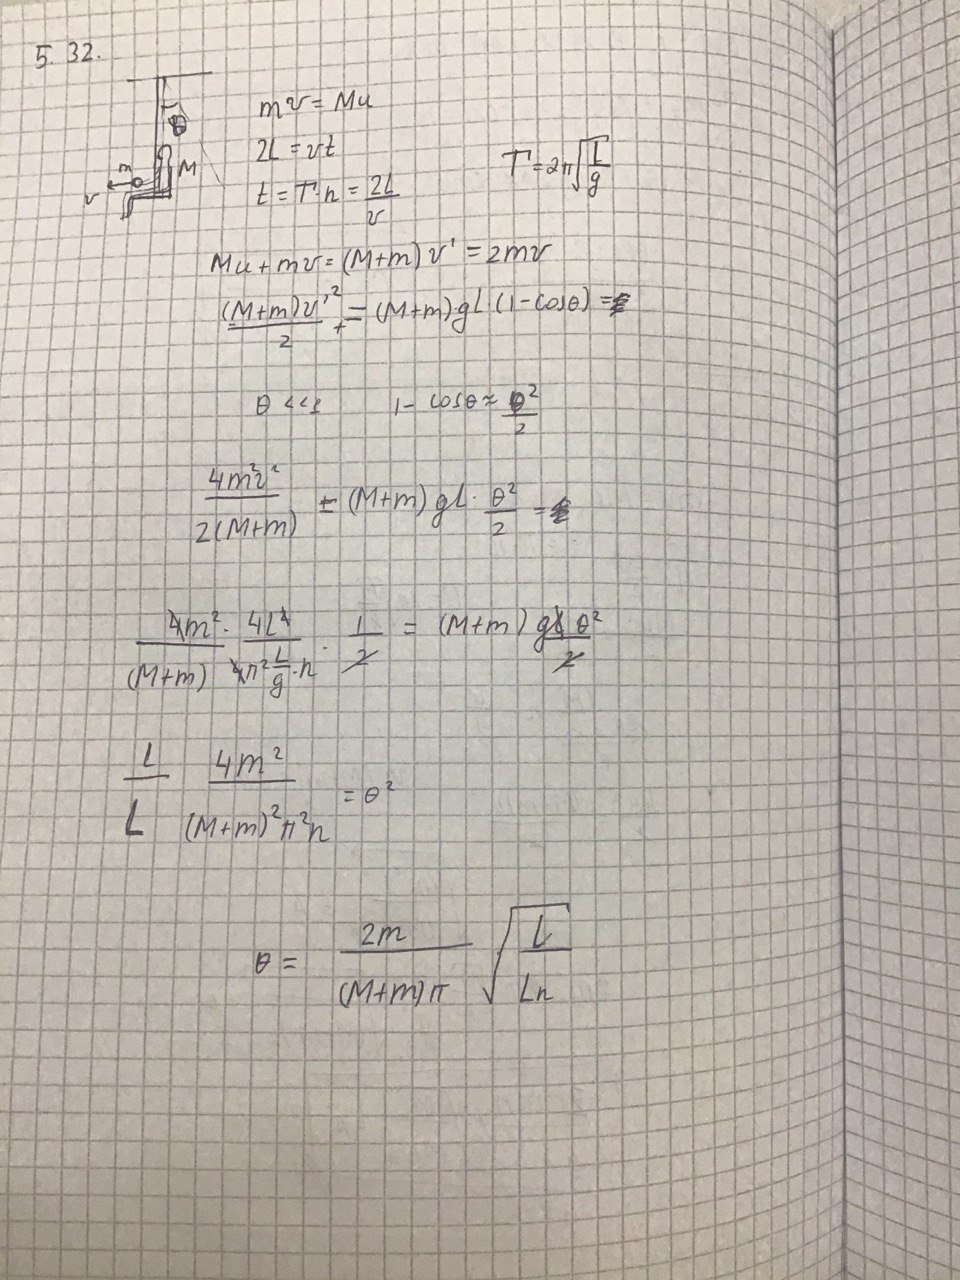 5.32.
θ
m
M
v
mv = Mu
2L = vt
T = 2π√(L/g)
t = T·n = 2L/v
Mu + mv = (M+m) v' = 2mv
(M+m)v'²/2 = (M+m)gL(1-cosθ) =
θ << 1    1 - cosθ ≈ θ²/2
4m²v²/2(M+m) = (M+m)gL·θ²/2 =
4m²/(M+m) · 4L²/(4π² L/g ·n) · 1/2 = (M+m) gL θ²/2
L/L 4m²/((M+m)²π²n) = θ²
θ = 2m/((M+m)π) √(L/Ln)